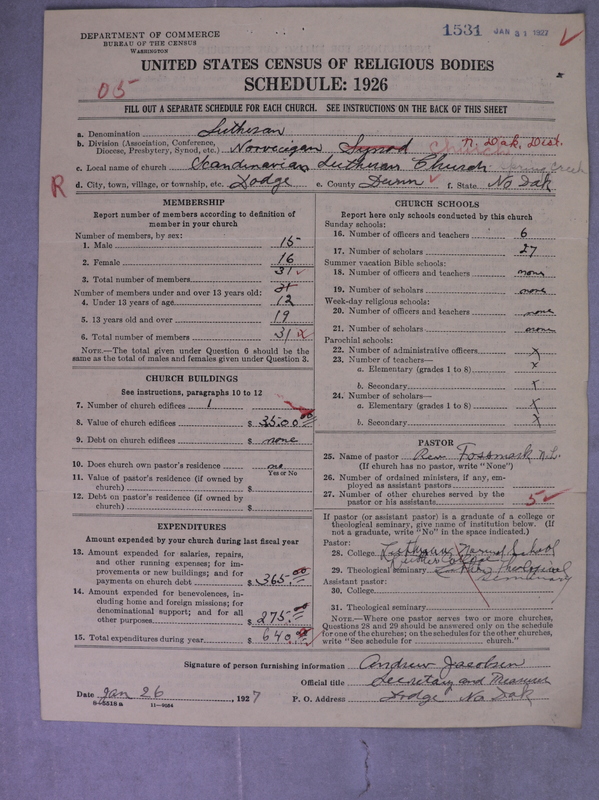 DEPARTMENT OF COMMERCE
BUREAU OF THE CENSUS
WASHINGTON
1531 JAN 31 1927
UNITED STATES CENSUS OF RELIGIOUS BODIES
SCHEDULE: 1926
05
FILL OUT A SEPARATE SCHEDULE FOR EACH CHURCH. SEE INSTRUCTIONS ON THE BACK OF THIS SHEET
a. Denomination Lutheran
b. Division (Association, Conference, Diocese, Presbytery, Synod, etc.) Norwegian Synod Church N. Dak. Dist.
c. Local name of church Scandinavian Lutheran Church
R d. City, town, village, or township, etc. Dodge e. County Dunn f. State No Dak
MEMBERSHIP
Report number of members according to definition of member in your church
Number of members, by sex:
1. Male 15
2. Female 16
3. Total number of members 31
Number of members under and over 13 years old:
4. Under 13 years of age 12
5. 13 years old and over 19
6. Total number of members 31
NOTE.—The total given under Question 6 should be the same as the total of males and females given under Question 3.
CHURCH BUILDINGS
See instructions, paragraphs 10 to 12
7. Number of church edifices 1
8. Value of church edifices $ 3500.00
9. Debt on church edifices $ none
10. Does church own pastor's residence no
Yes or No
11. Value of pastor's residence (if owned by church) $
12. Debt on pastor's residence (if owned by church) $
EXPENDITURES
Amount expended by your church during last fiscal year
13. Amount expended for salaries, repairs, and other running expenses; for improvements or new buildings; and for payments on church debt $ 365.00
14. Amount expended for benevolences, including home and foreign missions; for denominational support; and for all other purposes $ 275.00
15. Total expenditures during year $ 640.00
CHURCH SCHOOLS
Report here only schools conducted by this church
Sunday schools:
16. Number of officers and teachers 6
17. Number of scholars 27
Summer vacation Bible schools:
18. Number of officers and teachers none
19. Number of scholars none
Week-day religious schools:
20. Number of officers and teachers none
21. Number of scholars none
Parochial schools:
22. Number of administrative officers x
23. Number of teachers—
a. Elementary (grades 1 to 8) x
b. Secondary x
24. Number of scholars—
a. Elementary (grades 1 to 8) x
b. Secondary x
PASTOR
25. Name of pastor Rev. Fossmark N.L.
(If church has no pastor, write "None")
26. Number of ordained ministers, if any, employed as assistant pastors
27. Number of other churches served by the pastor or his assistants 5
If pastor (or assistant pastor) is a graduate of a college or theological seminary, give name of institution below. (If not a graduate, write "No" in the space indicated.)
Pastor:
28. College Lutheran Normal School
29. Theological seminary Luther Theological Seminary
Assistant pastor:
30. College
31. Theological seminary
NOTE.—Where one pastor serves two or more churches, Questions 28 and 29 should be answered only on the schedule for one of the churches; on the schedules for the other churches, write "See schedule for church."
Signature of person furnishing information Andrew Jacobsen
Official title Secretary and Treasurer
Date Jan 26, 1927 P. O. Address Dodge No Dak
11—9054